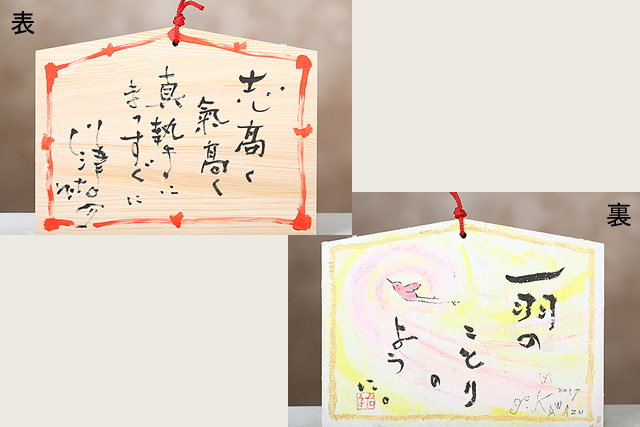 表
志高く
氣高く
真摯に
まっすぐに
川津祐介
裏
一羽の
ことり
の
よう
に。
祐
2017
Y. KAWAZU